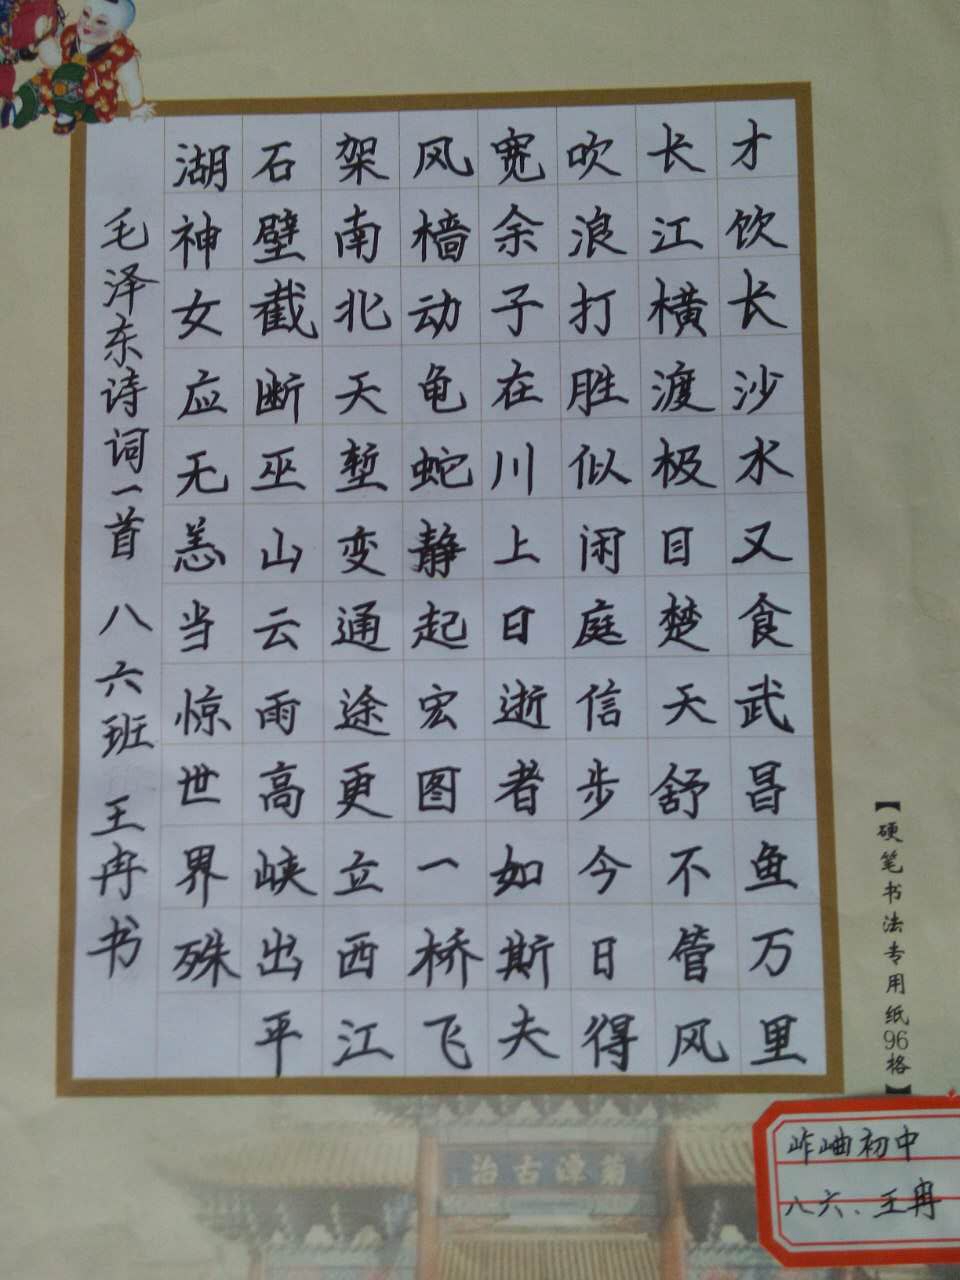 才饮长沙水又食武昌鱼万里
长江横渡极目楚天舒不管风
吹浪打胜似闲庭信步今日得
宽余子在川上日逝者如斯夫
风樯动龟蛇静起宏图一桥飞
架南北天堑变通途更立西江
石壁截断巫山云雨高峡出平
湖神女应无恙当惊世界殊
毛泽东诗词一首 八六班 王冉书
【硬笔书法专用纸96格】
菊潭古治
初中
八六、王冉